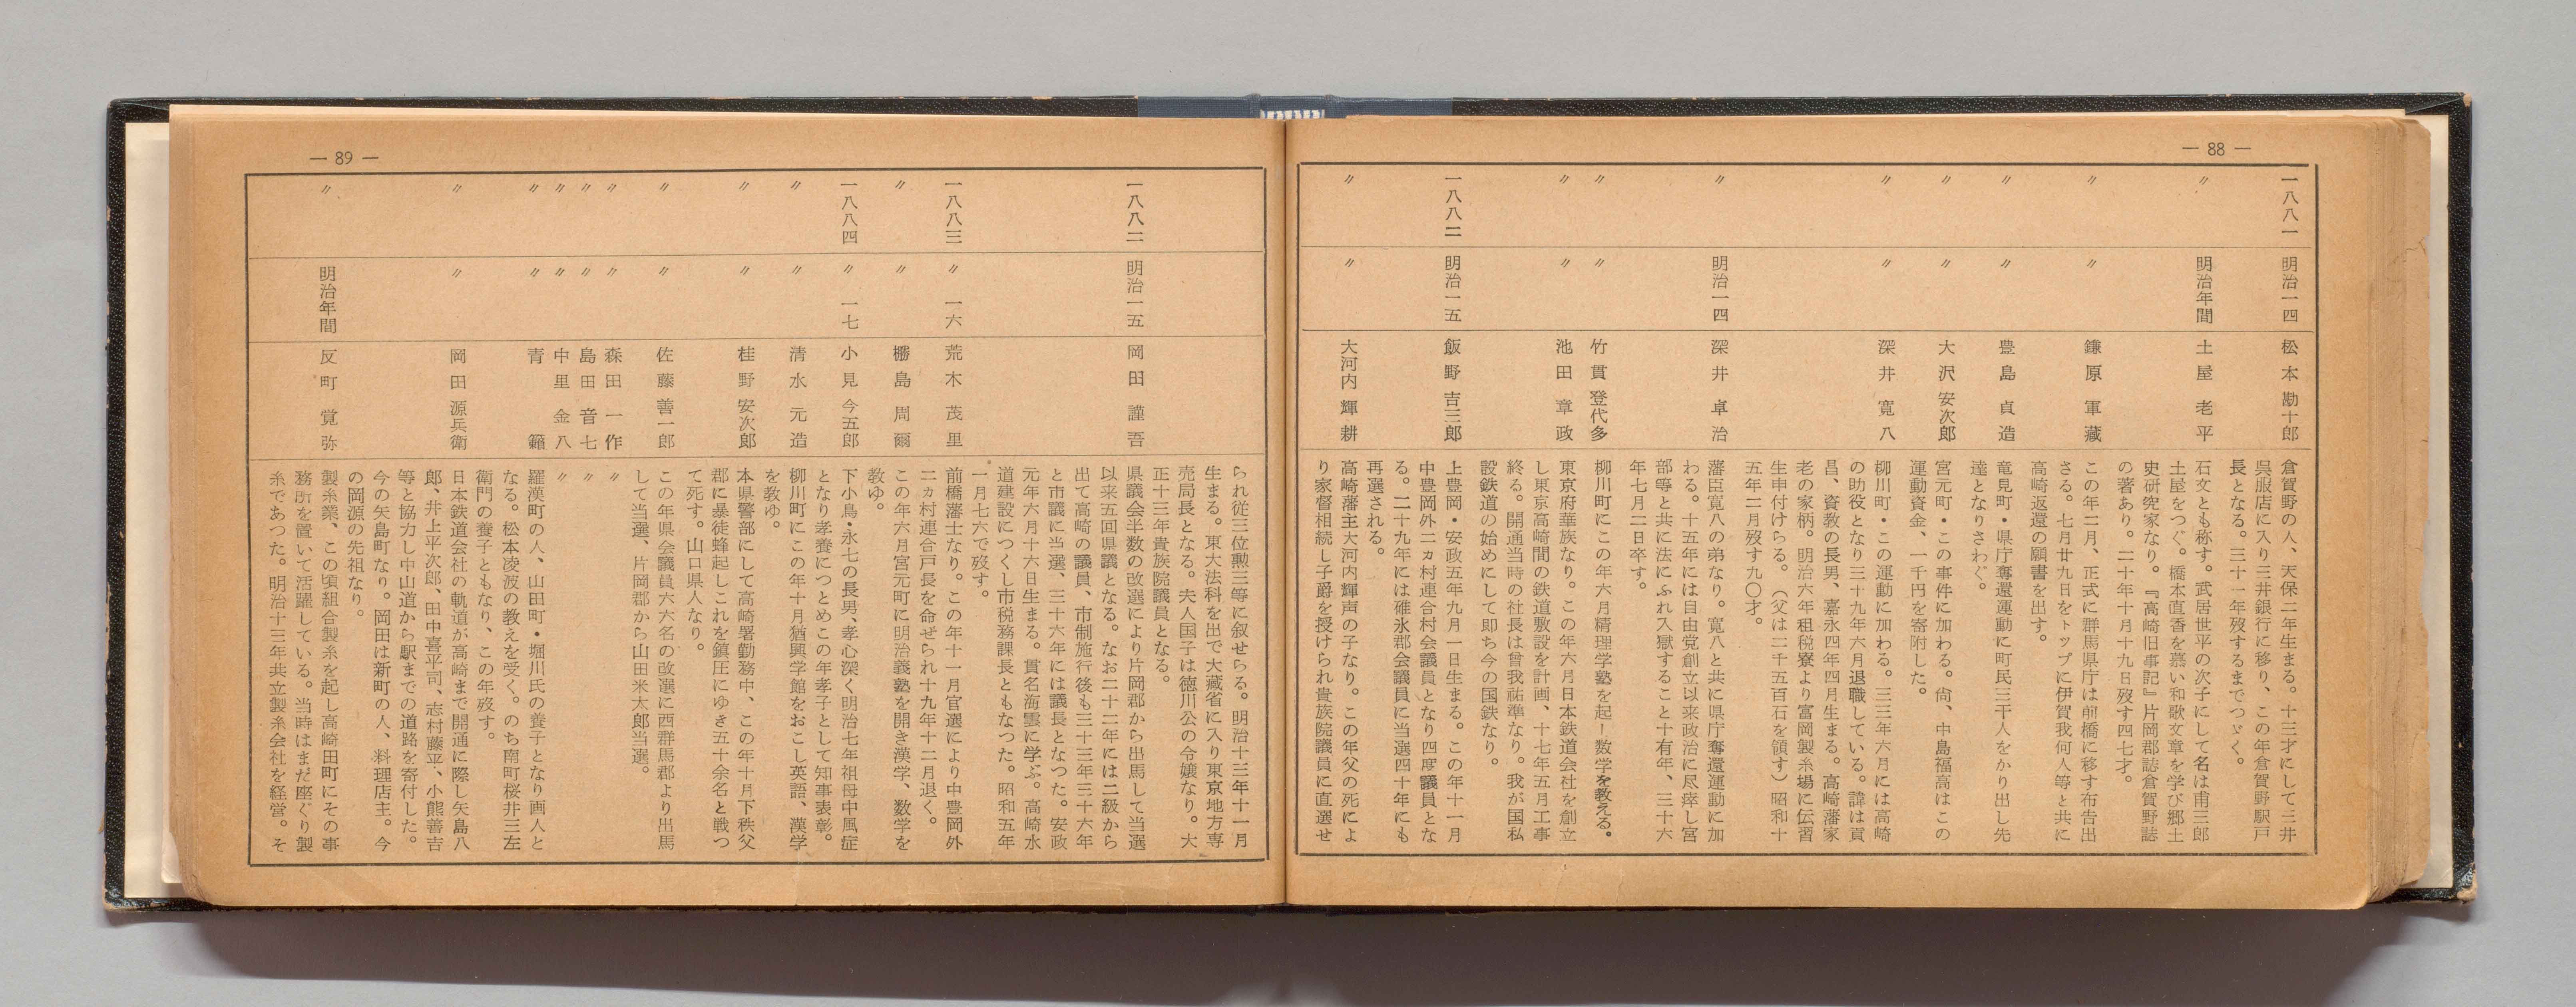 — 88 —
一八八一 明治一四 松本勘十郎 倉賀野の人、天保二年生まる。十三才にして三井
呉服店に入り三井銀行に移り、この年倉賀野駅戸
長となる。三十一年歿するまでつゞく。
〃 明治年間 土屋老平 石文とも称す。武居世平の次子にして名は甫三郎
土屋をつぐ。橋本直香を慕い和歌文章を学び郷土
史研究家なり。『高崎旧事記』片岡郡誌倉賀野誌
の著あり。二十年十月十九日歿す四七才。
〃 〃 鎌原軍蔵 この年二月、正式に群馬県庁は前橋に移す布告出
さる。七月廿九日をトップに伊賀我何人等と共に
高崎返還の願書を出す。
〃 〃 豊島貞造 竜見町・県庁奪還運動に町民三千人をかり出し先
達となりさわぐ。
〃 〃 大沢安次郎 宮元町・この事件に加わる。尚、中島福高はこの
運動資金、一千円を寄附した。
〃 〃 深井寛八 柳川町・この運動に加わる。三三年六月には高崎
の助役となり三十九年六月退職している。諱は貢
昌、資教の長男、嘉永四年四月生まる。高崎藩家
老の家柄。明治六年租税寮より富岡製糸場に伝習
生申付けらる。（父は二千五百石を領す）昭和十
五年二月歿す九〇才。
〃 明治一四 深井卓治 藩臣寛八の弟なり。寛八と共に県庁奪還運動に加
わる。十五年には自由党創立以来政治に尽瘁し宮
部等と共に法にふれ入獄すること十有年、三十六
年七月二日卒す。
〃 〃 竹貫登代多 柳川町にこの年六月精理学塾を起し数学を教える。
〃 〃 池田章政 東京府華族なり。この年六月日本鉄道会社を創立
し東京高崎間の鉄道敷設を計画、十七年五月工事
終る。開通当時の社長は曾我祐準なり。我が国私
設鉄道の始めにして即ち今の国鉄なり。
一八八二 明治一五 飯野吉三郎 上豊岡・安政五年九月一日生まる。この年十一月
中豊岡外二ヵ村連合村会議員となり四度議員とな
る。二十九年には碓氷郡会議員に当選四十年にも
再選される。
〃 〃 大河内輝耕 高崎藩主大河内輝声の子なり。この年父の死によ
り家督相続し子爵を授けられ貴族院議員に直選せ
— 89 —
られ従三位勲三等に叙せらる。明治十三年十一月
生まる。東大法科を出で大蔵省に入り東京地方専
売局長となる。夫人国子は徳川公の令嬢なり。大
正十三年貴族院議員となる。
一八八二 明治一五 岡田謹吾 県議会半数の改選により片岡郡から出馬して当選
以来五回県議となる。なお二十二年には二級から
出て高崎の議員、市制施行後も三十三年三十六年
と市議に当選、三十六年には議長となつた。安政
元年六月十六日生まる。貫名海雲に学ぶ。高崎水
道建設につくし市税務課長ともなつた。昭和五年
一月七六で歿す。
一八八三 〃 一六 荒木茂里 前橋藩士なり。この年十一月官選により中豊岡外
二ヵ村連合戸長を命ぜられ十九年十二月退く。
〃 〃 橳島周爾 この年六月宮元町に明治義塾を開き漢学、数学を
教ゆ。
一八八四 〃 一七 小見今五郎 下小鳥・永七の長男、孝心深く明治七年祖母中風症
となり孝養につとめこの年孝子として知事表彰。
〃 〃 清水元造 柳川町にこの年十月猶興学館をおこし英語、漢学
を教ゆ。
〃 〃 桂野安次郎 本県警部にして高崎署勤務中、この年十月下秩父
郡に暴徒蜂起しこれを鎮圧にゆき五十余名と戦つ
て死す。山口県人なり。
〃 〃 佐藤善一郎 この年県会議員六六名の改選に西群馬郡より出馬
して当選、片岡郡から山田米太郎当選。
〃 〃 森田一作 〃
〃 〃 島田音七 〃
〃 〃 中里金八 〃
〃 〃 青籟 羅漢町の人、山田町・堀川氏の養子となり画人と
なる。松本凌波の教えを受く。のち南町桜井三左
衛門の養子ともなり、この年歿す。
〃 〃 岡田源兵衛 日本鉄道会社の軌道が高崎まで開通に際し矢島八
郎、井上平次郎、田中喜平司、志村藤平、小熊善吉
等と協力し中山道から駅までの道路を寄付した。
今の矢島町なり。岡田は新町の人、料理店主。今
の岡源の先祖なり。
〃 明治年間 反町覚弥 製糸業、この頃組合製糸を起し高崎田町にその事
務所を置いて活躍している。当時はまだ座ぐり製
糸であつた。明治十三年共立製糸会社を経営。そ